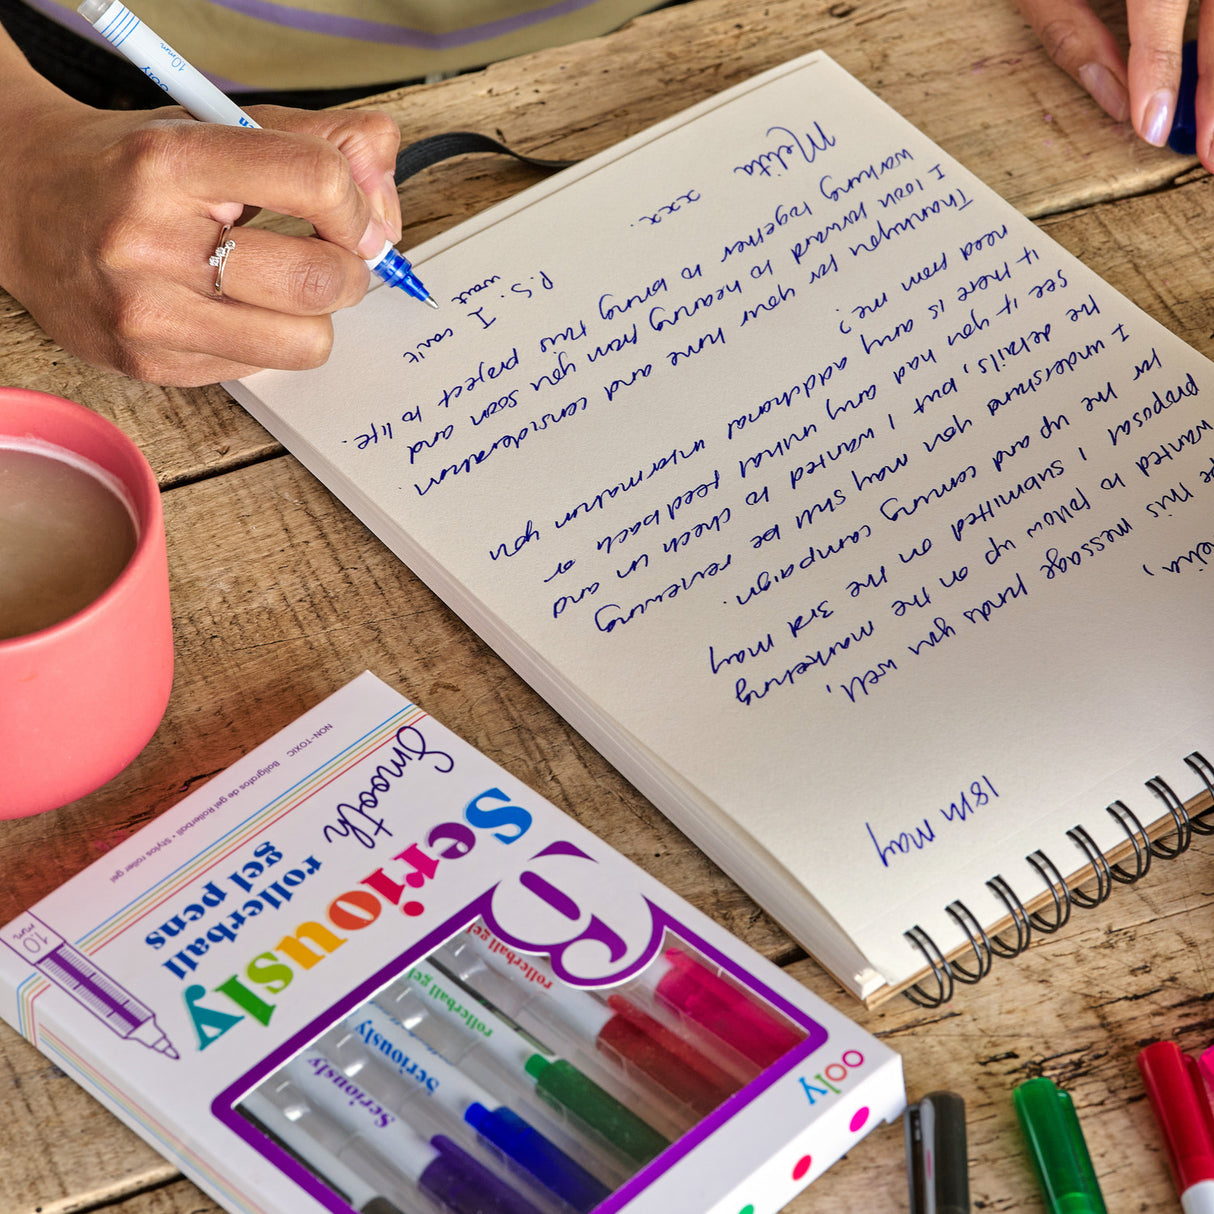 18th May
wanted to follow up on the marketing
proposal I submitted on the 3rd May
for the up and coming campaign.
I understand you may still be reviewing
the details, but I wanted to check in and
see if you had any initial feedback or
if there is any additional information you
need from me?
Thankyou for your time and consideration.
I look forward to hearing from you soon and
working together to bring this project to life.
xxx.
Melita
P.S. I can't
wait
Smooth
Seriously
rollerball
gel pens
NON-TOXIC Bolígrafos de gel Rollerball • Stylos roller gel
1.0
mm
6
ooly
rollerball gel
rollerball gel
Seriously
Seriously
1.0mm
ooly